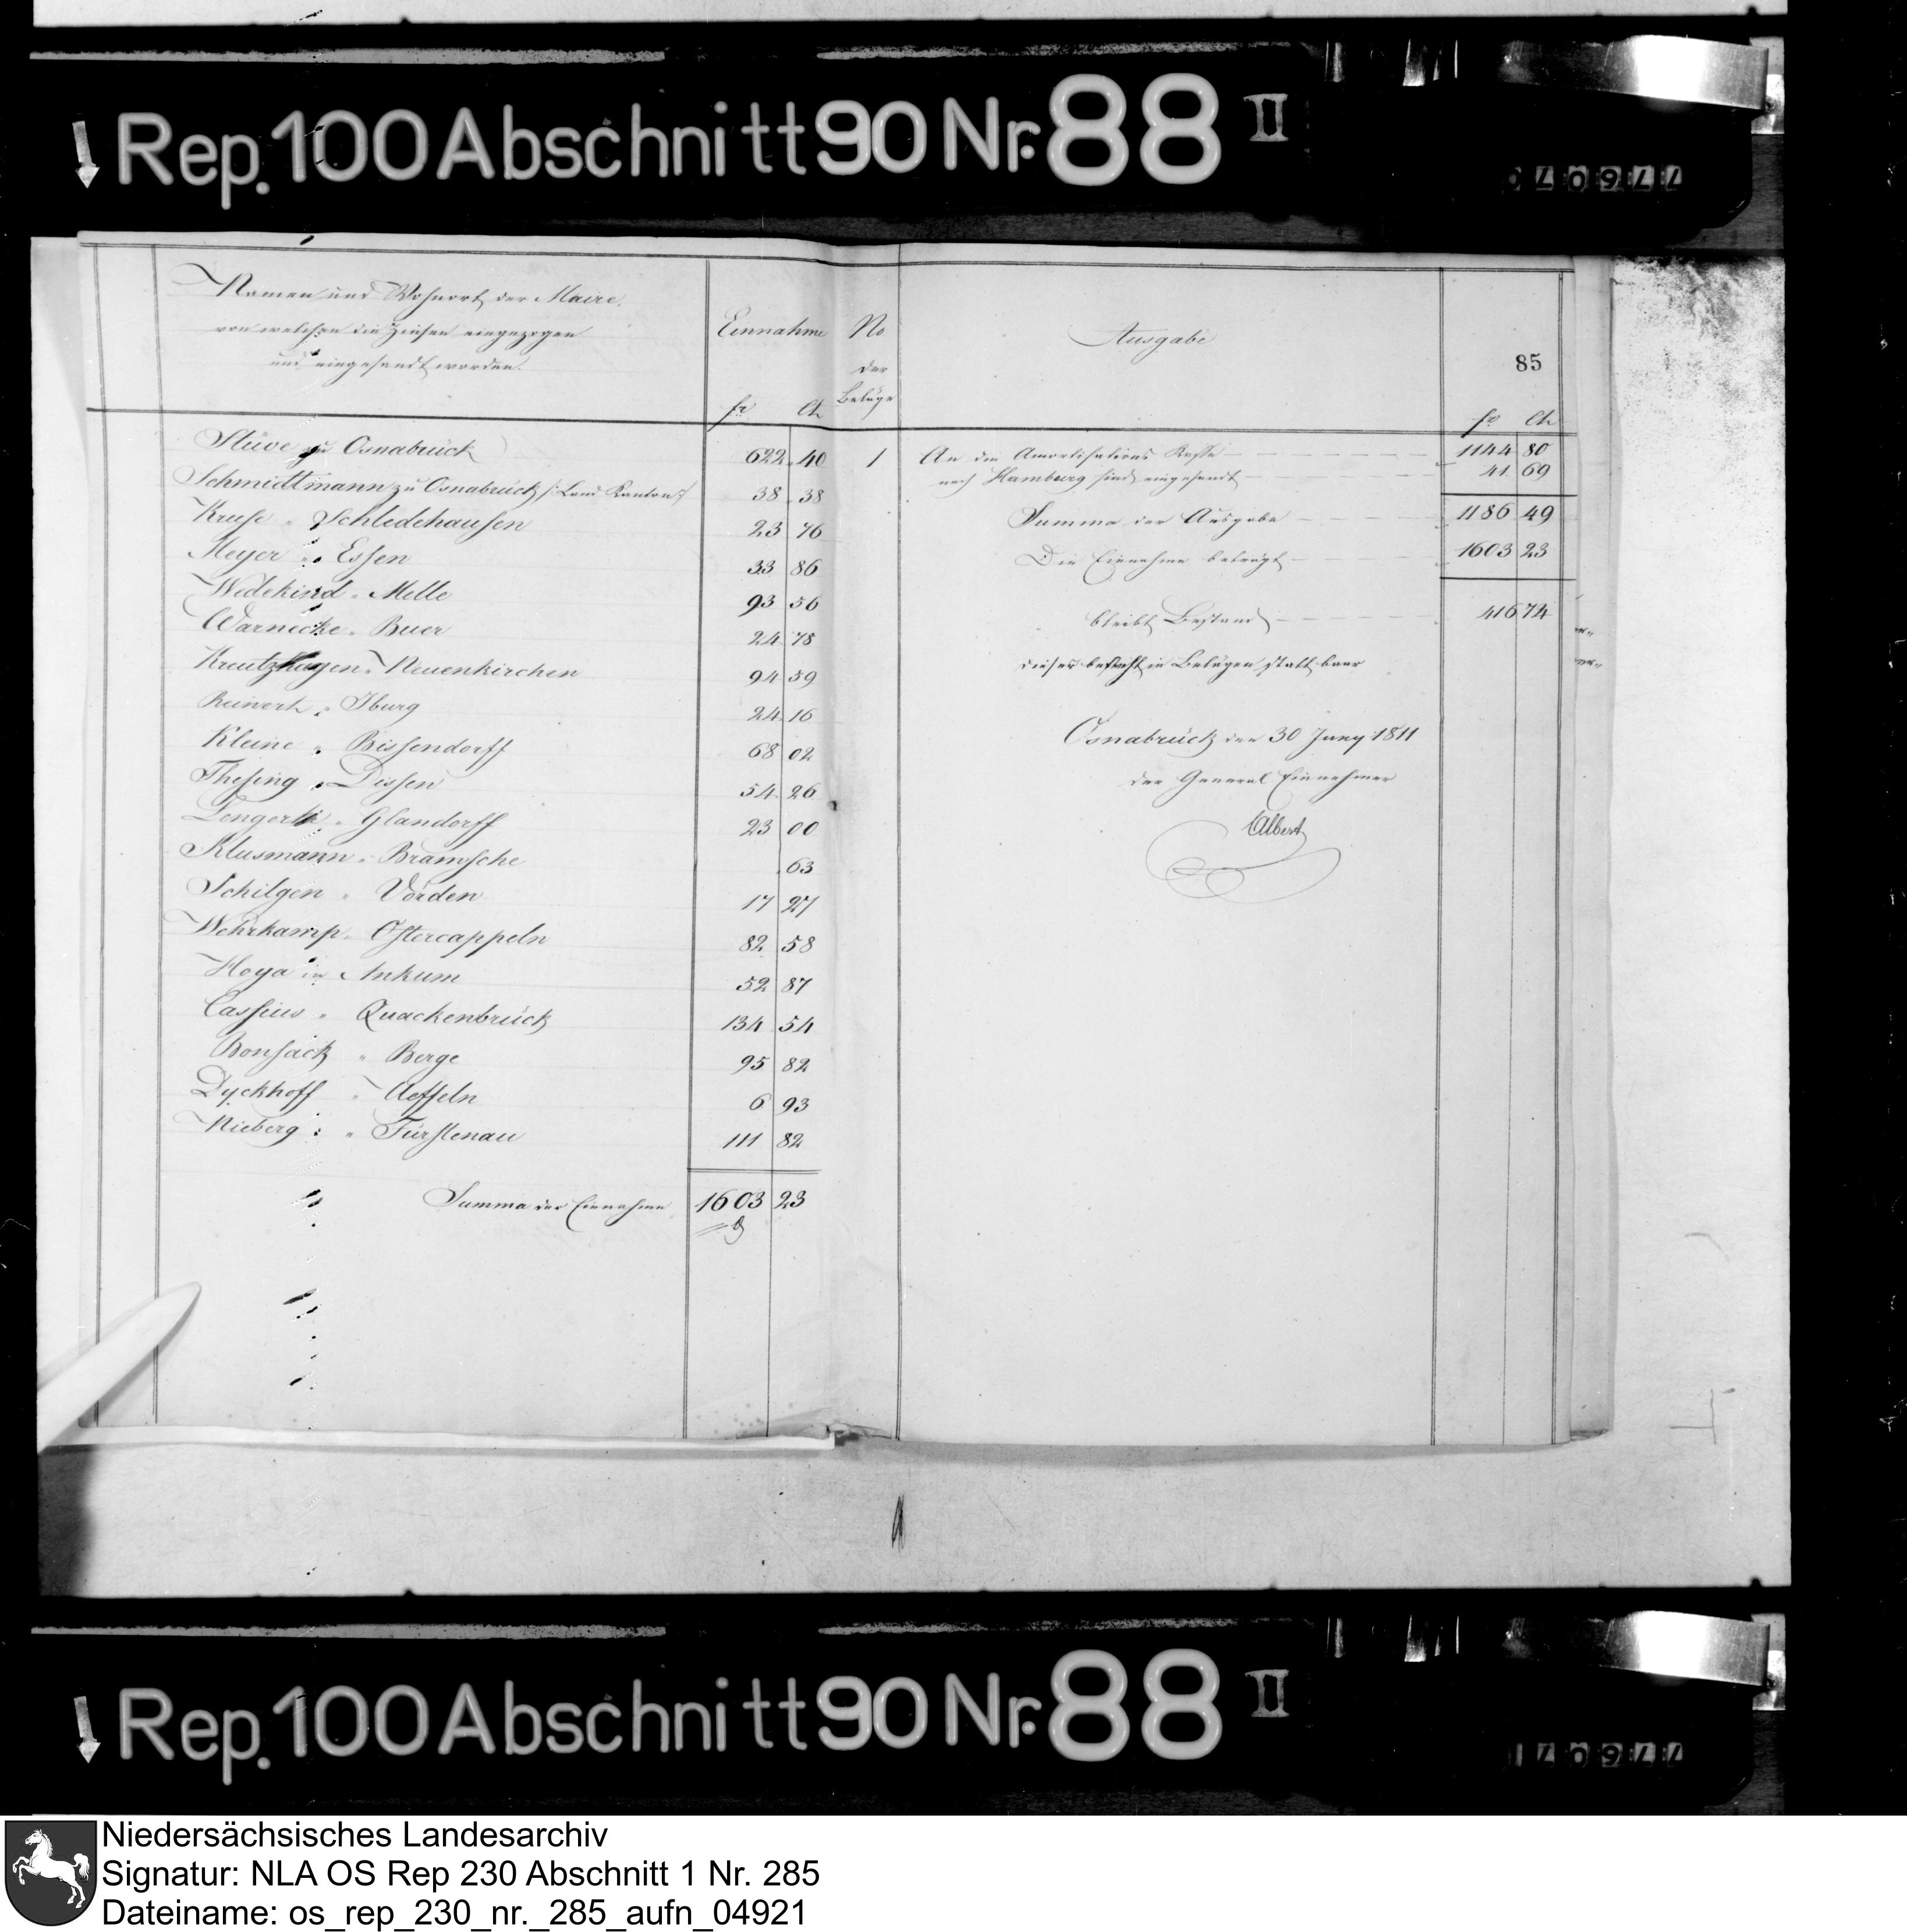 Rep. 100 Abschnitt 90 Nr. 88 II
77 60 70
Namen und Wohnort der Maire,
von welchen die Zinsen eingezogen
und eingesandt worden.
Einnahme
fr Ct
No
der
Beläge
Ausgabe
85
fr Ct
Stüve zu Osnabrück 622 40
Schmidtmann zu Osnabrück /: Land Kanton :/ 38 38
Kruse " Schledehausen 23 76
Meyer " Essen 33 86
Wedekind " Melle 93 56
Warnecke " Buer 24 78
Kreutzhagen " Neuenkirchen 94 59
Reinert " Iburg 24 16
Kleine " Bissendorff 68 02
Thesing " Dissen 54 26
Lengerk " Glandorff 23 00
Klusmann " Bramsche " 63
Schilgen " Vörden 17 27
Wehrkamp " Ostercappeln 82 58
Hoya in Ankum 52 87
Cassius " Quackenbrück 134 54
Bonsack " Berge 95 82
Dyckhoff " Ueffeln 6 93
Nieberg " Fürstenau 111 82
Summa der Einnahme 1603 23
1 An die Amortisations Kasse 1144 80
nach Hamburg sind eingesandt 41 69
Summa der Ausgabe 1186 49
Die Einnahme beträgt 1603 23
bleibt Bestand 416 74
dieser besteht in Belägen statt baar
Osnabrück den 30 Juny 1811
der General Einnehmer
Albert
Rep. 100 Abschnitt 90 Nr. 88 II
77 60 71
Niedersächsisches Landesarchiv
Signatur: NLA OS Rep 230 Abschnitt 1 Nr. 285
Dateiname: os_rep_230_nr._285_aufn_04921